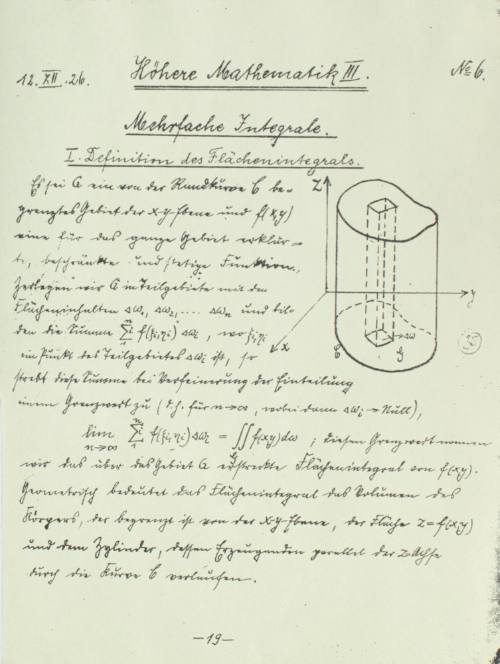 12. XII. 26.
Höhere Mathematik III.
No 6.
Mehrfache Integrale.
I. Definition des Flächenintegrals.
Es sei G ein von der Randkurve C be-
grenztes Gebiet der x-y-Ebene und f(x,y)
eine für das ganze Gebiet erklär-
te, beschränkte und stetige Funktion.
Zerlegen wir G in Teilgebiete mit den
Flächeninhalten Δω₁, Δω₂, .... Δωn und bil-
den die Summe Σ f(ξi, ηi) Δωi, wo ξi, ηi
ein Punkt des Teilgebietes Δωi ist, so
strebt diese Summe bei Verfeinerung der Einteilung
einem Grenzwert zu (d.h. für n→∞, wobei dann Δωi → Null),
lim n→∞ Σ f(ξi, ηi) Δωi = ∬ f(x,y) dω ; diesen Grenzwert nennen
wir das über das Gebiet G erstreckte Flächenintegral von f(x,y).
Geometrisch bedeutet das Flächenintegral das Volumen des
Körpers, der begrenzt ist von der x-y-Ebene, der Fläche z = f(x,y)
und dem Zylinder, dessen Erzeugenden parallel der z-Achse
durch die Kurve C verlaufen.
Z
y
x
C
Δω
G
–19–